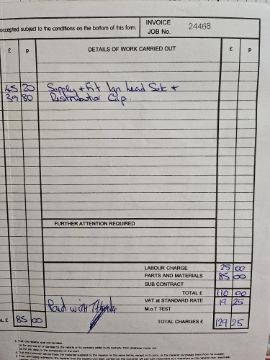 accepted subject to the conditions on the bottom of this form.
INVOICE
JOB No. 24468
£ p DETAILS OF WORK CARRIED OUT £ p
45 20 Supply + Fit Ign Lead Set +
39 80 Distributor Cap
FURTHER ATTENTION REQUIRED
LABOUR CHARGE 25 00
PARTS AND MATERIALS 85 00
SUB CONTRACT
TOTAL £ 110 00
VAT at STANDARD RATE 19 25
M.o.T TEST
Paid with Thanks
£ 85 00 TOTAL CHARGES £ 129 25